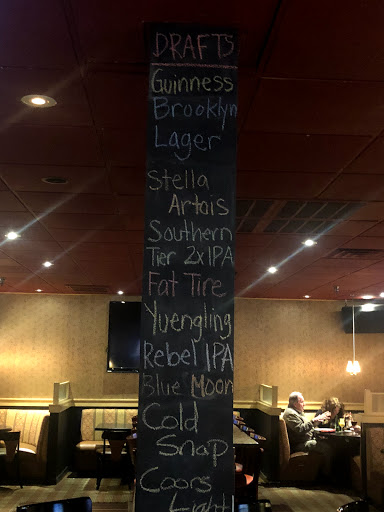 DRAFTS
Guinness
Brooklyn
Lager
Stella
Artois
Southern
Tier 2xIPA
Fat Tire
Yuengling
Rebel IPA
Blue Moon
Cold
Snap
Coors
Light